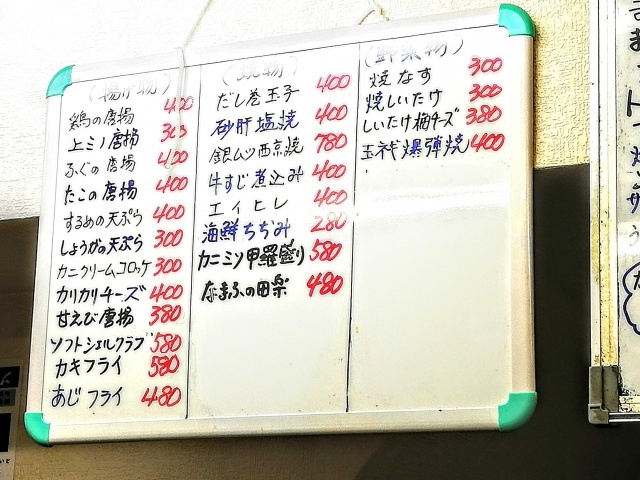 (揚げ物)
鶏の唐揚 400
上ミノ唐揚 300
ふぐの唐揚 400
たこの唐揚 400
するめの天ぷら 400
しょうがの天ぷら 300
カニクリームコロッケ 300
カリカリチーズ 400
甘えび唐揚 380
ソフトシェルクラブ 580
カキフライ 580
あじフライ 480
(焼物)
だし巻玉子 400
砂肝塩焼 400
銀ムツ西京焼 780
牛すじ煮込み 400
エイヒレ 400
海鮮ちぢみ 280
カニミソ甲羅盛り 580
なまふの田楽 480
(野菜物)
焼なす 300
焼しいたけ 300
しいたけ梅チーズ 380
玉ネギ爆弾焼 400